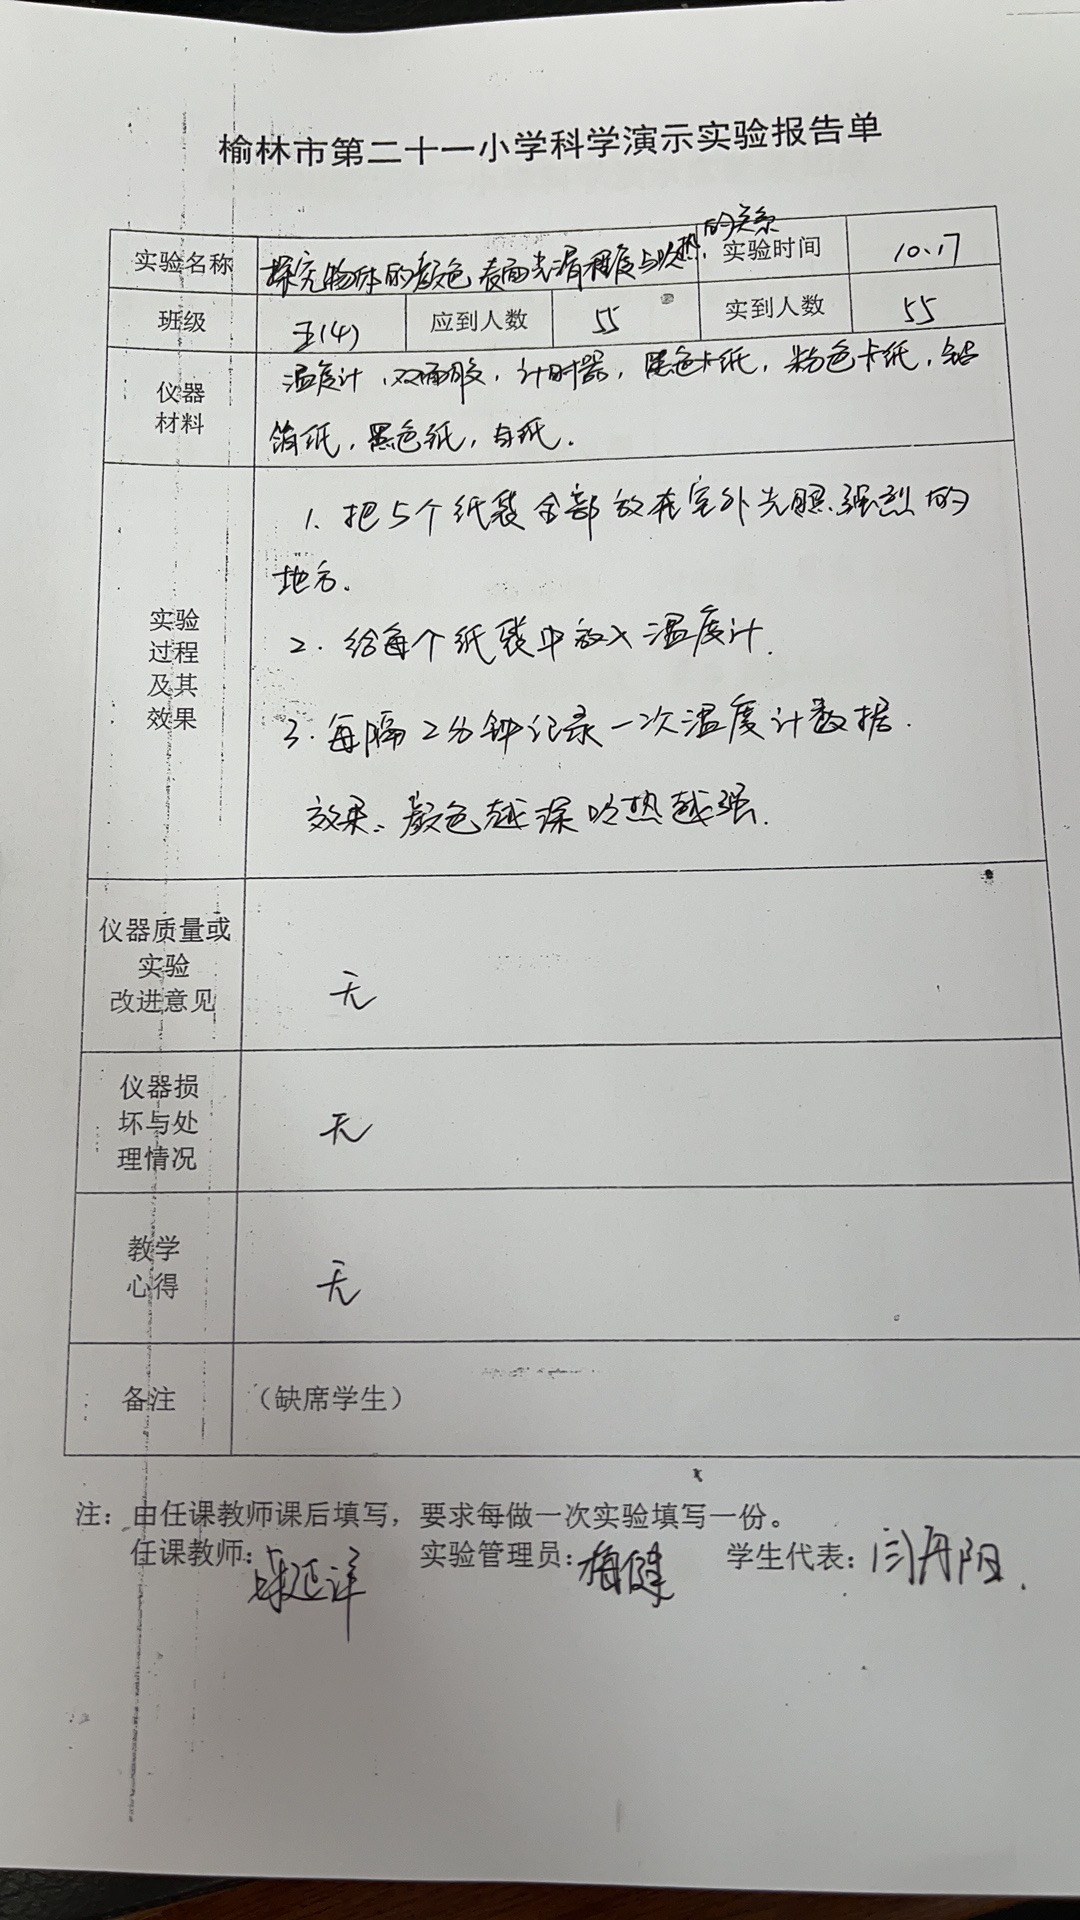 榆林市第二十一小学科学演示实验报告单
实验名称 探究物体的颜色表面光滑程度与吸热的关系 实验时间 10.17
班级 五(4) 应到人数 55 实到人数 55
仪器材料 温度计,双面胶,计时器,黑色卡纸,粉色卡纸,铝
箔纸,黑色纸,白纸.
实验过程及其效果
1. 把5个纸袋全部放在室外光照强烈的
地方.
2. 给每个纸袋中放入温度计.
3. 每隔2分钟记录一次温度计数据.
效果:颜色越深吸热越强.
仪器质量或实验改进意见 无
仪器损坏与处理情况 无
教学心得 无
备注 (缺席学生)
注:由任课教师课后填写,要求每做一次实验填写一份。
任课教师: 实验管理员:梅健 学生代表:闫丹阳.